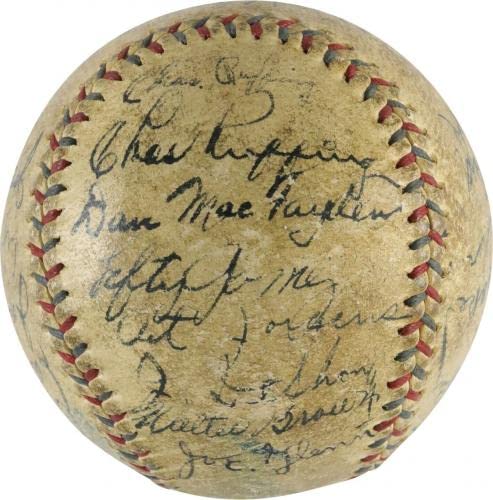 Chas. Ruffing
Chas Ruffing
Dan MacFayden
Lefty Gomez
Art Jorgens
J. DeShong
Walter Brown
Joe Glenn